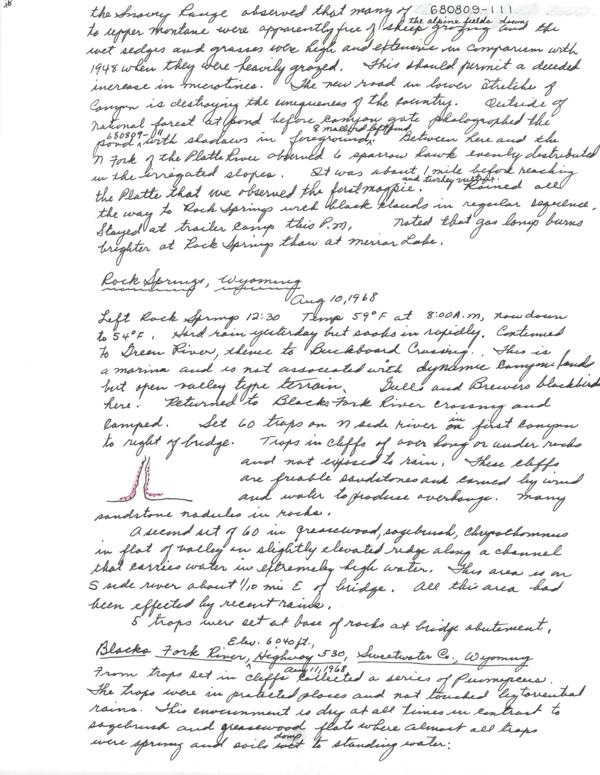 680809-111
the Snowy Range observed that many of the alpine fields down
to upper montane were apparently free of sheep grazing and the
wet sedges and grasses were high and extensive in comparison with
1948 when they were heavily grazed. This should permit a decided
increase in microtines. The new road in lower stretche of
Canyon is destroying the uniqueness of the country. Outside of
National forest at pond before canyon gate photographed the
680809-11
pond with shadows in foreground. & mallard left pond. Between here and the
N Fork of the Platte River observed 6 sparrow hawk evenly distributed
in the irrigated slopes. It was about 1 mile before reaching
the Platte that we observed the first magpie. and turkey vulture. Rained all
the way to Rock Springs with black clouds in regular sequence.
Stayed at trailer camp this P.M. Noted that gas lamp burns
brighter at Rock Springs than at mirror Lake.
Rock Springs, Wyoming
Aug 10, 1968
Left Rock Springs 12:30 Temp 59°F at 8:00 A.m, now down
to 54°F. Hard rain yesterday but soaks in rapidly. Continued
to Green River, thence to Buckboard Crossing. This is
a marina and is not associated with dynamic canyon lands
but open valley type terrain. Gulls and Brewers blackbirds
here. Returned to Blacks Fork River crossing and
camped. Set 60 traps on N side river in first canyon
to right of bridge. Traps in cliffs of over hang or under rocks
and not exposed to rain. These cliffs
are freable sandstones and carved by wind
and water to produce overhangs. Many
sandstone nodules in rocks.
A second set of 60 in greasewood, sagebrush, Chrysothomnus
in flat of valley on slightly elevated ridge along a channel
that carries water in extremely high water. This area is on
S side river about 1/10 mi E of bridge. All this area had
been effected by recent rains.
5 traps were set at base of rocks at bridge abutement.
Elev. 6040 ft,
Blacks Fork River, Highway 530, Sweetwater Co., Wyoming
Aug 11, 1968
From traps set in cliffs collected a series of Peromyscus.
The traps were in protected places and not touched by torrential
rains. This environment is dry at all times in contrast to
sagebrush and greasewood flats where almost all traps
were sprung and soils damp wet to standing water.